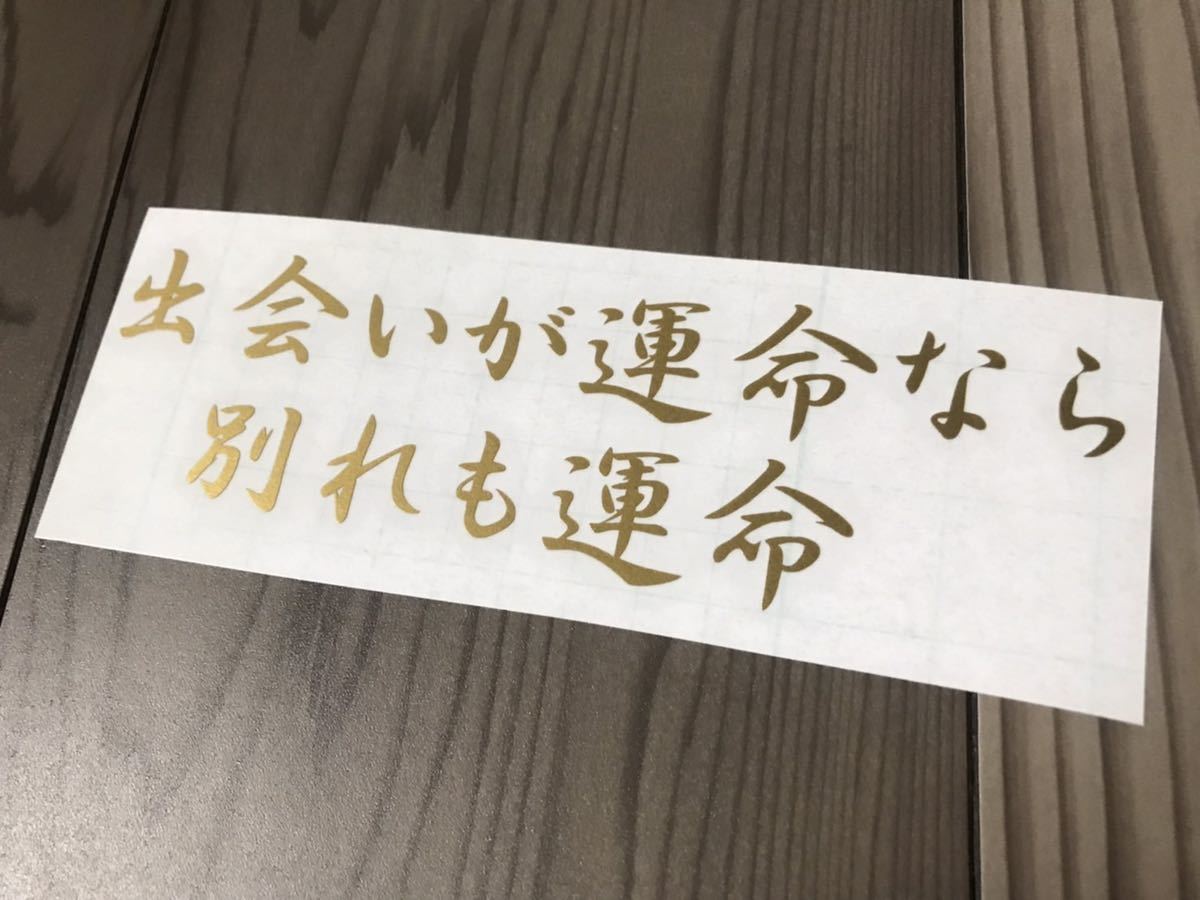 出会いが運命なら
別れも運命